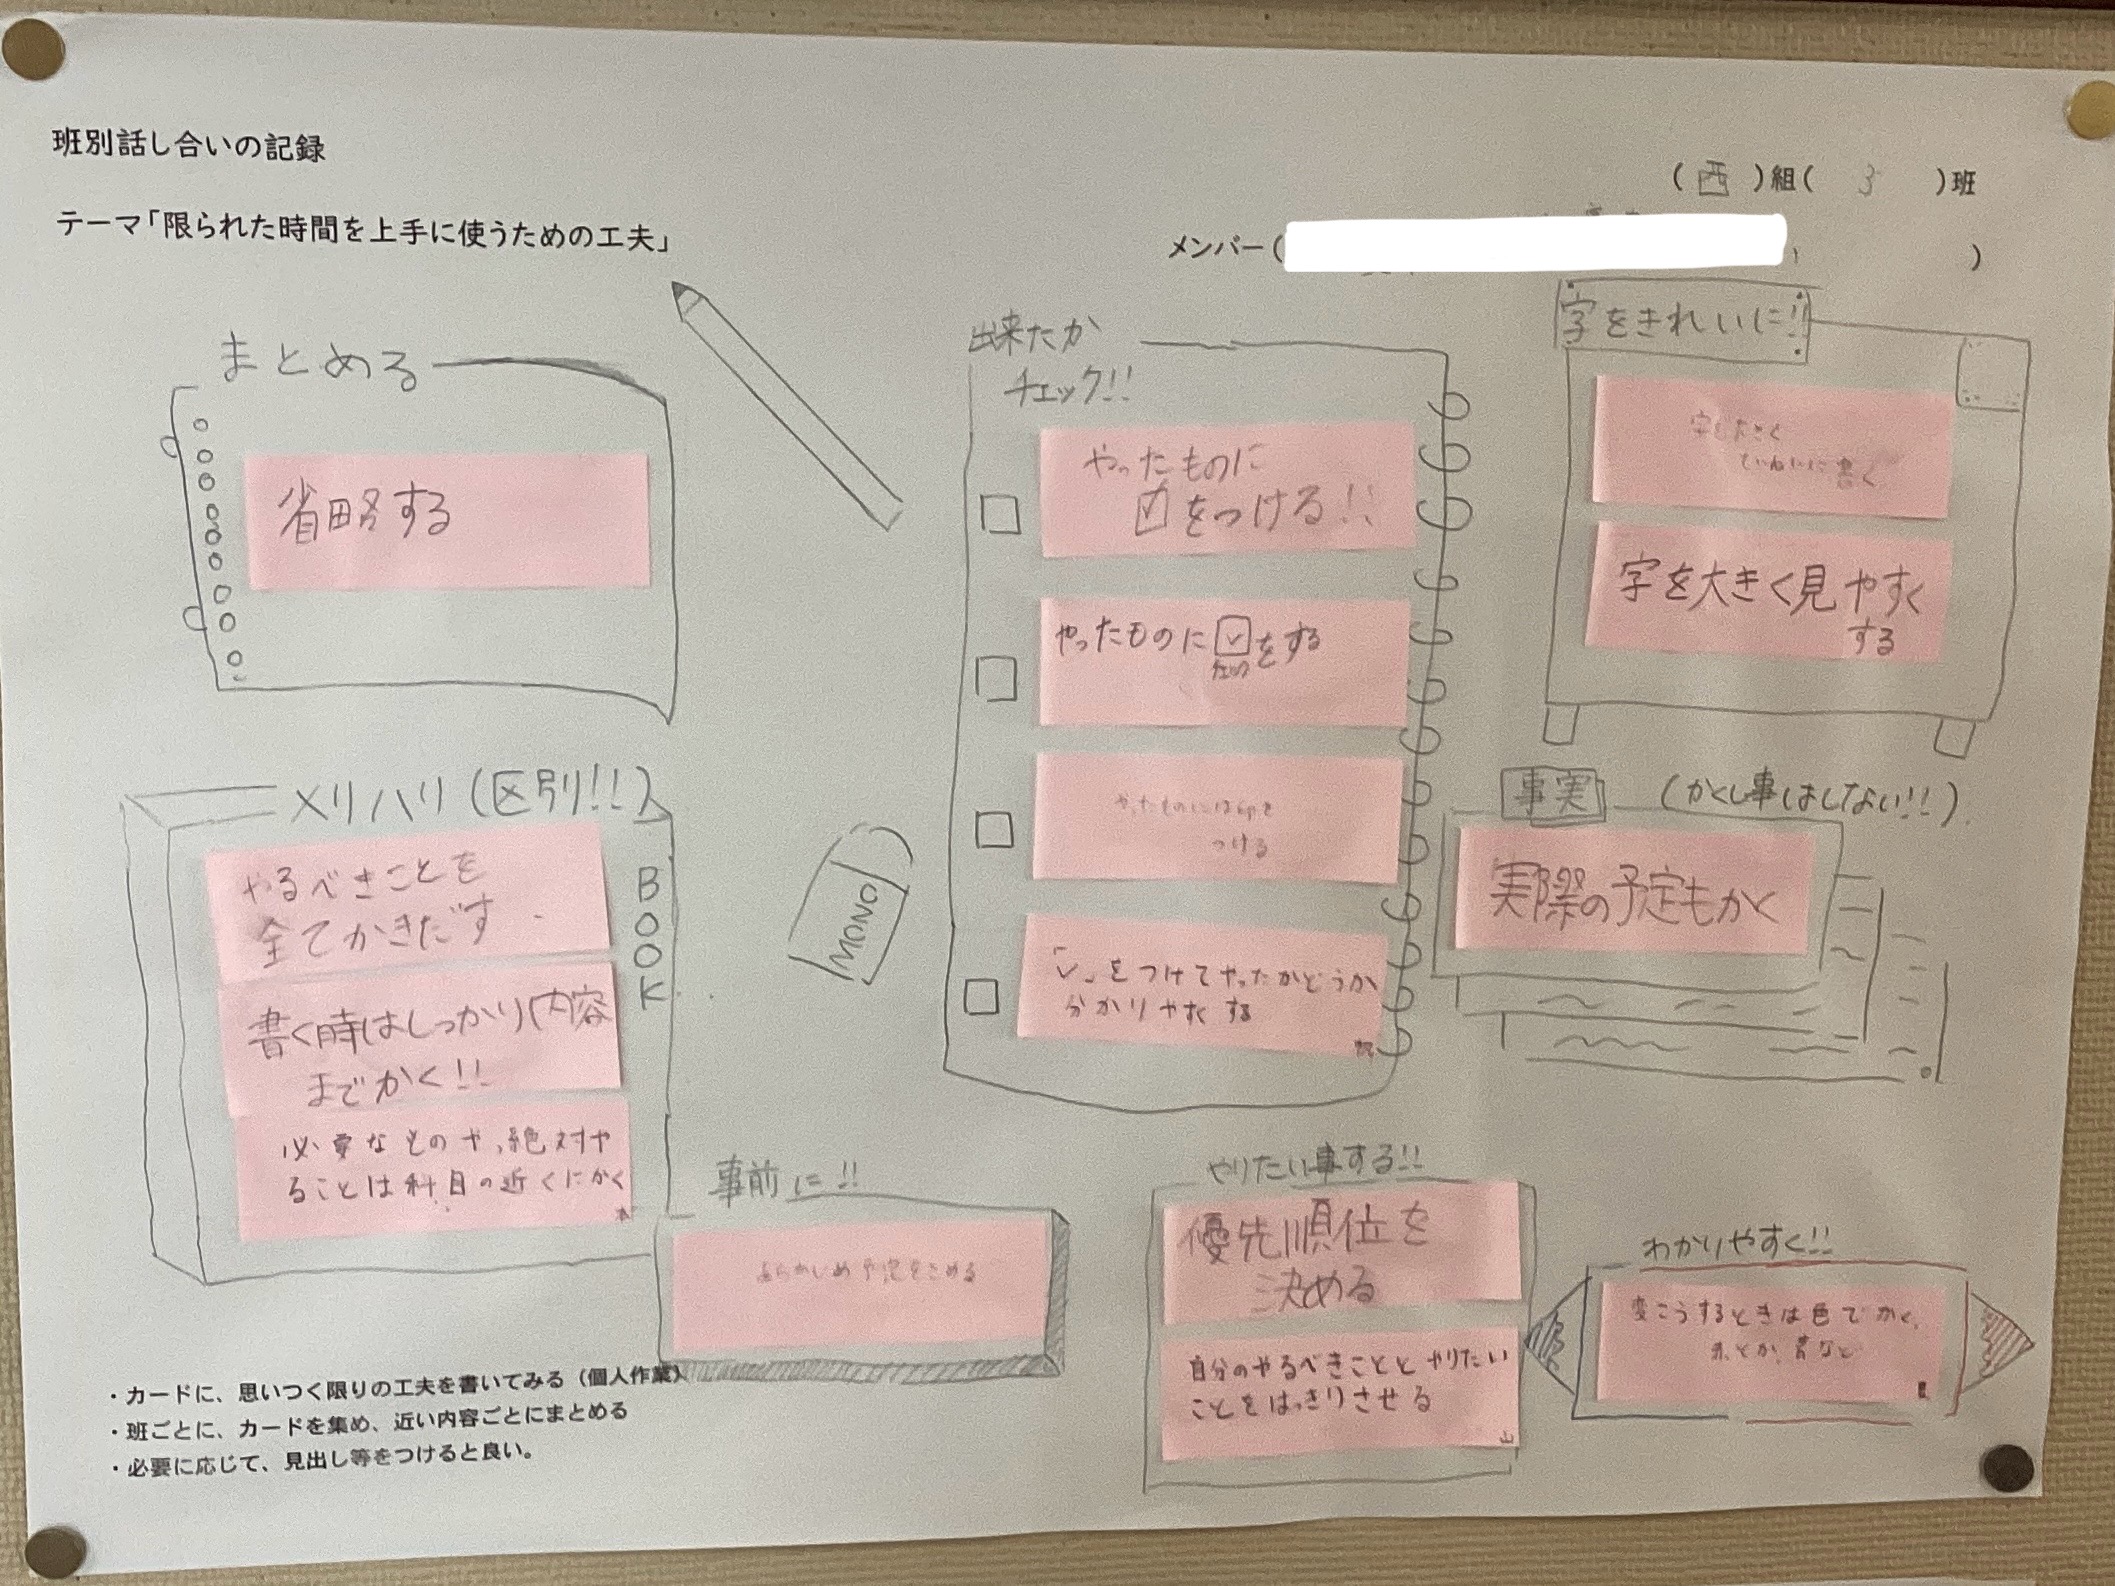 班別話し合いの記録
(西)組(3)班
テーマ「限られた時間を上手に使うための工夫」
メンバー( )
まとめる
省略する
出来たか
チェック!!
やったものに
☑をつける!!
やったものに☑をする
チェック
やったものには印を
つける
「✓」をつけてやったかどうか
分かりやすくする
字をきれいに!!
ていねいに書く
字を大きく見やすく
する
メリハリ(区別!!)
やるべきことを
全てかきだす.
書く時はしっかり内容
までかく!!
必要なものや、絶対や
ることは科目の近くにかく
BOOK
MONO
事実
(かくし事はしない!!)
実際の予定もかく
事前に!!
あらかじめ予定をきめる
やりたい事する!!
優先順位を
決める
自分のやるべきこととやりたい
ことをはっきりさせる
山
わかりやすく!!
変こうするときは色でかく、
赤とか、青など
・カードに、思いつく限りの工夫を書いてみる(個人作業)
・班ごとに、カードを集め、近い内容ごとにまとめる
・必要に応じて、見出し等をつけると良い。